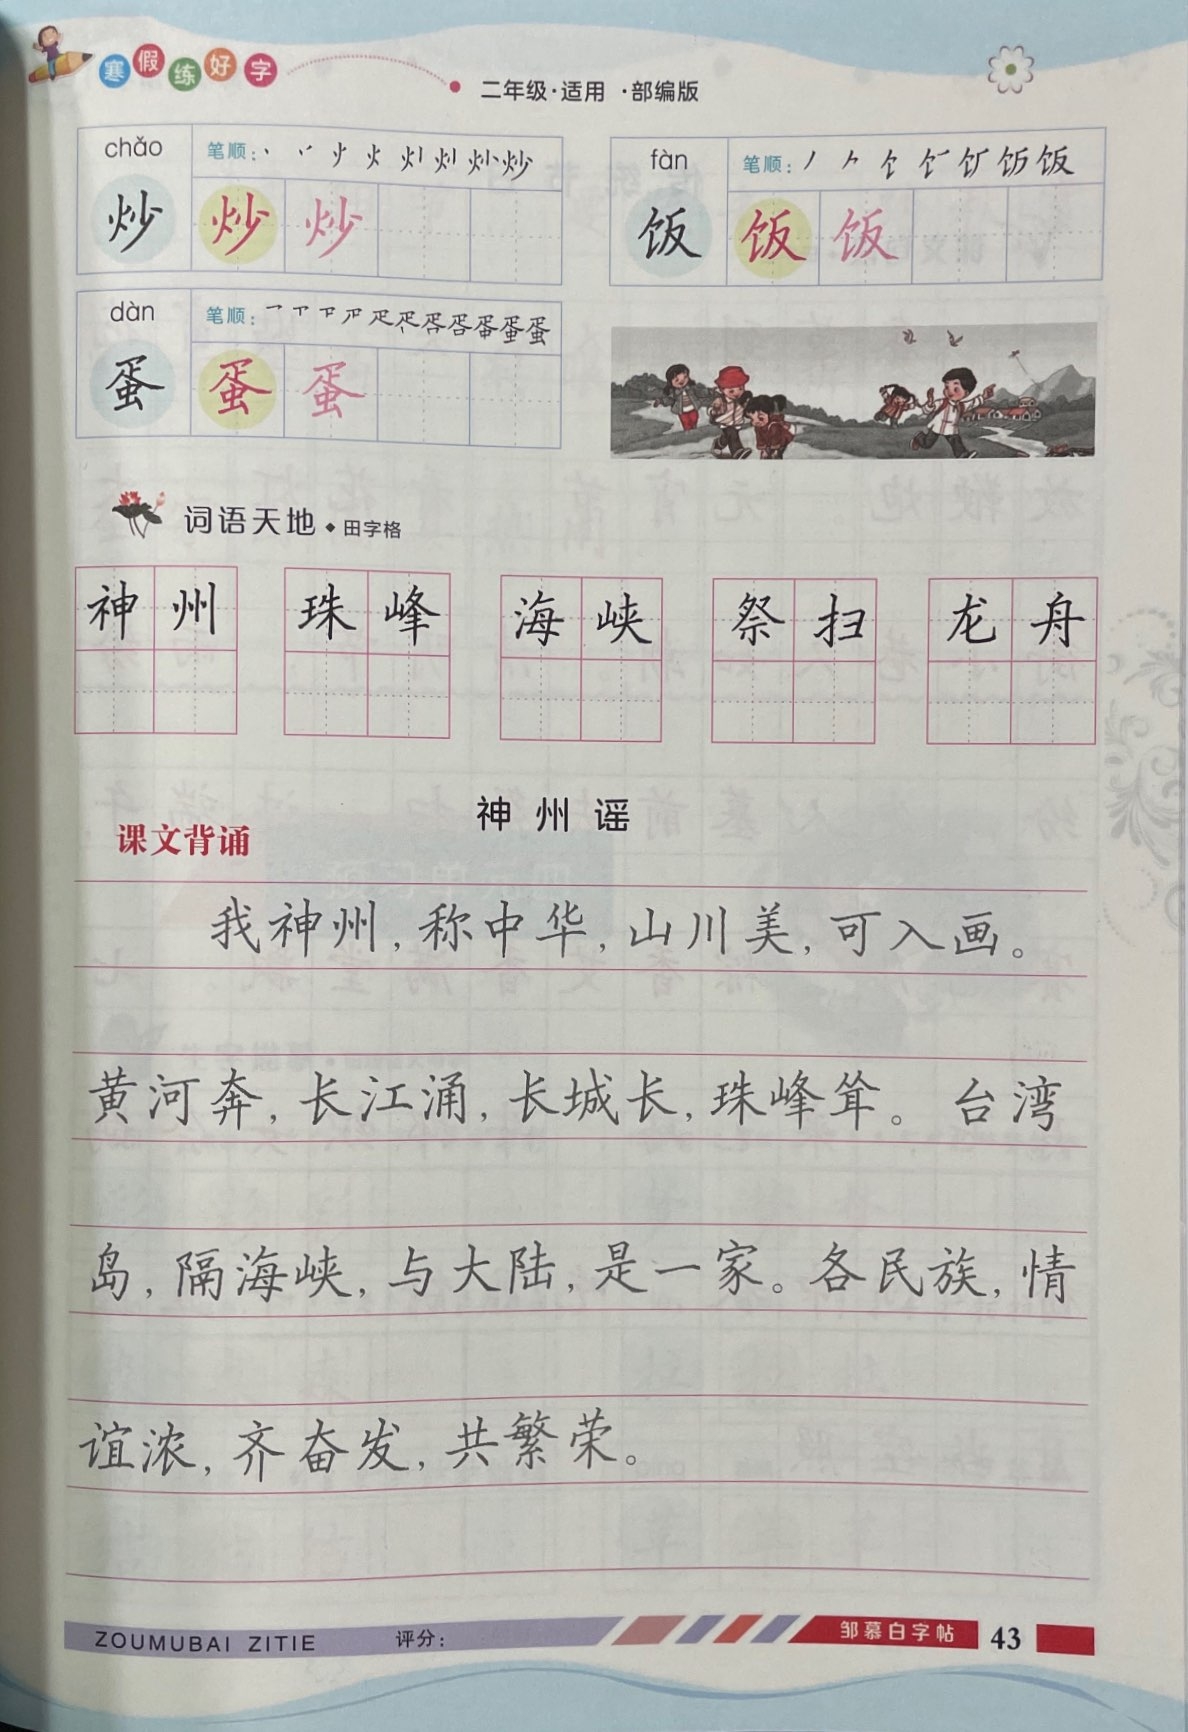 寒假练好字
二年级·适用 ·部编版
chǎo
笔顺：
炒 炒 炒
fàn
笔顺：
饭 饭 饭
dàn
笔顺：
蛋 蛋 蛋
词语天地·田字格
神州 珠峰 海峡 祭扫 龙舟
神州谣
课文背诵
我神州，称中华，山川美，可入画。
黄河奔，长江涌，长城长，珠峰耸。台湾
岛，隔海峡，与大陆，是一家。各民族，情
谊浓，齐奋发，共繁荣。
ZOUMUBAI ZITIE 评分： 邹慕白字帖 43